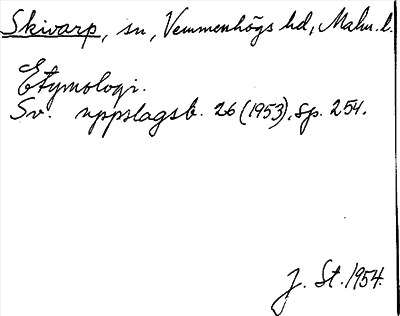 Skivarp, sn, Vemmenhögs hd, Malm. l.
Etymologi.
Sv. uppslagsb. 26 (1953), sp. 254.
J. St. 1954.